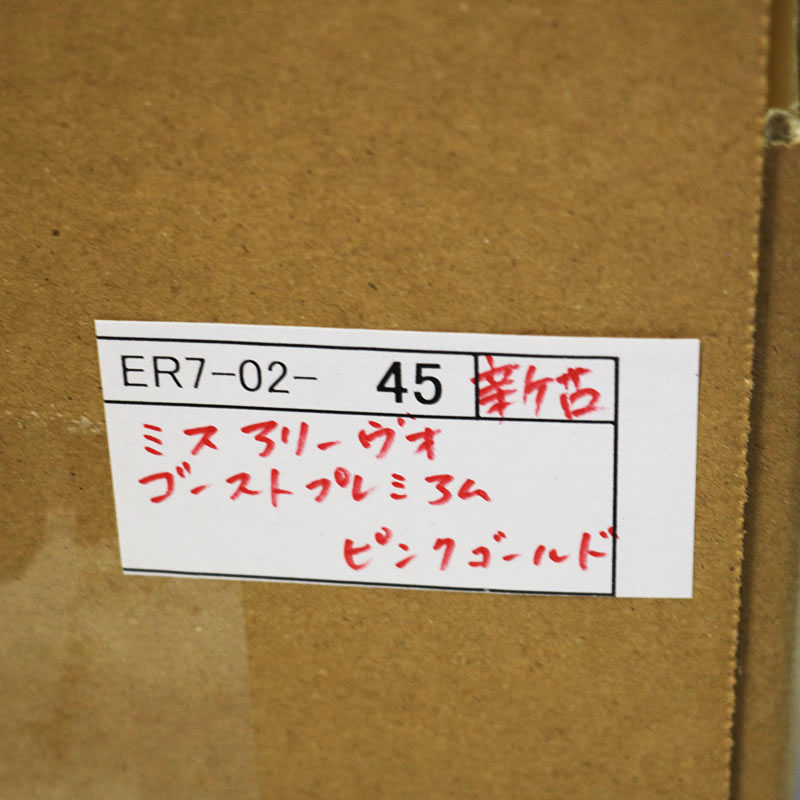 ER7-02- 45 新古
ミスアリーヴォ
ゴーストプレミアム
ピンクゴールド